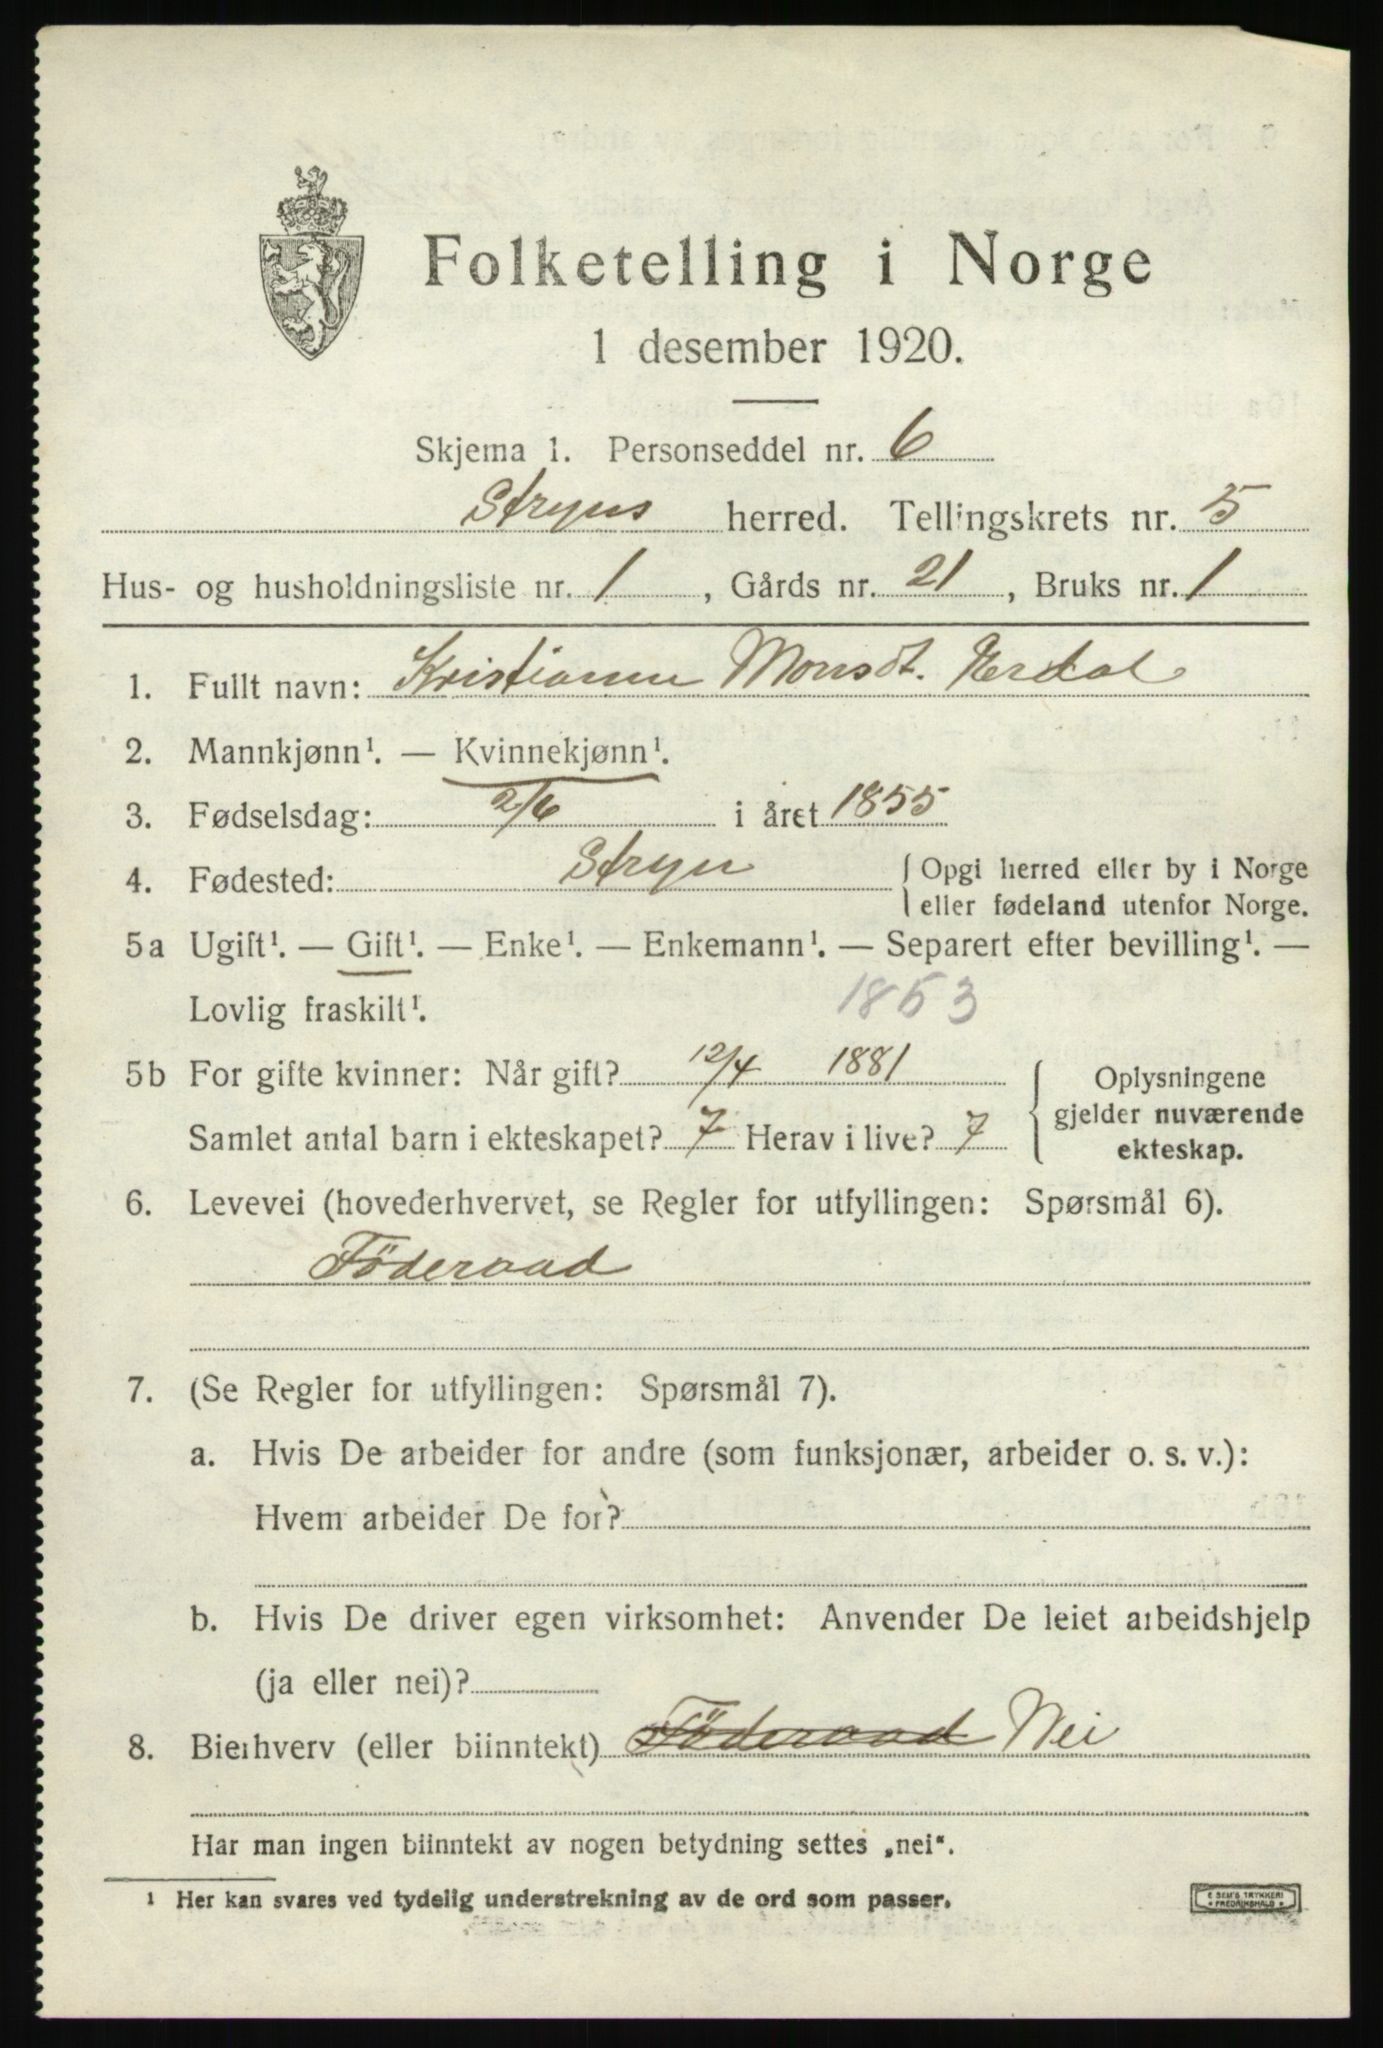 Folketelling i Norge
1 desember 1920.
Skjema 1. Personseddel nr. 6
Stryns herred. Tellingskrets nr. 5
Hus- og husholdningsliste nr. 1, Gårds nr. 21, Bruks nr. 1
1. Fullt navn: Kristianne Monsdt. Erdal
2. Mannkjønn¹. — Kvinnekjønn¹.
3. Fødselsdag: 2/6 i året 1855
4. Fødested: Stryn { Opgi herred eller by i Norge
eller fødeland utenfor Norge.
5a Ugift¹. — Gift¹. — Enke¹. — Enkemann¹. — Separert efter bevilling¹. —
Lovlig fraskilt¹. 1853
5b For gifte kvinner: Når gift? 12/4 1881
Samlet antal barn i ekteskapet? 7 Herav i live? 7
{ Oplysningene
gjelder nuværende
ekteskap.
6. Levevei (hovederhvervet, se Regler for utfyllingen: Spørsmål 6).
Föderaad
7. (Se Regler for utfyllingen: Spørsmål 7).
a. Hvis De arbeider for andre (som funksjonær, arbeider o. s. v.):
Hvem arbeider De for?
b. Hvis De driver egen virksomhet: Anvender De leiet arbeidshjelp
(ja eller nei)?
8. Bierhverv (eller biinntekt) Föderaad Nei
Har man ingen biinntekt av nogen betydning settes „nei“.
¹ Her kan svares ved tydelig understrekning av de ord som passer.
E SEM'S TRYKKERI
FREDRIKSHALD